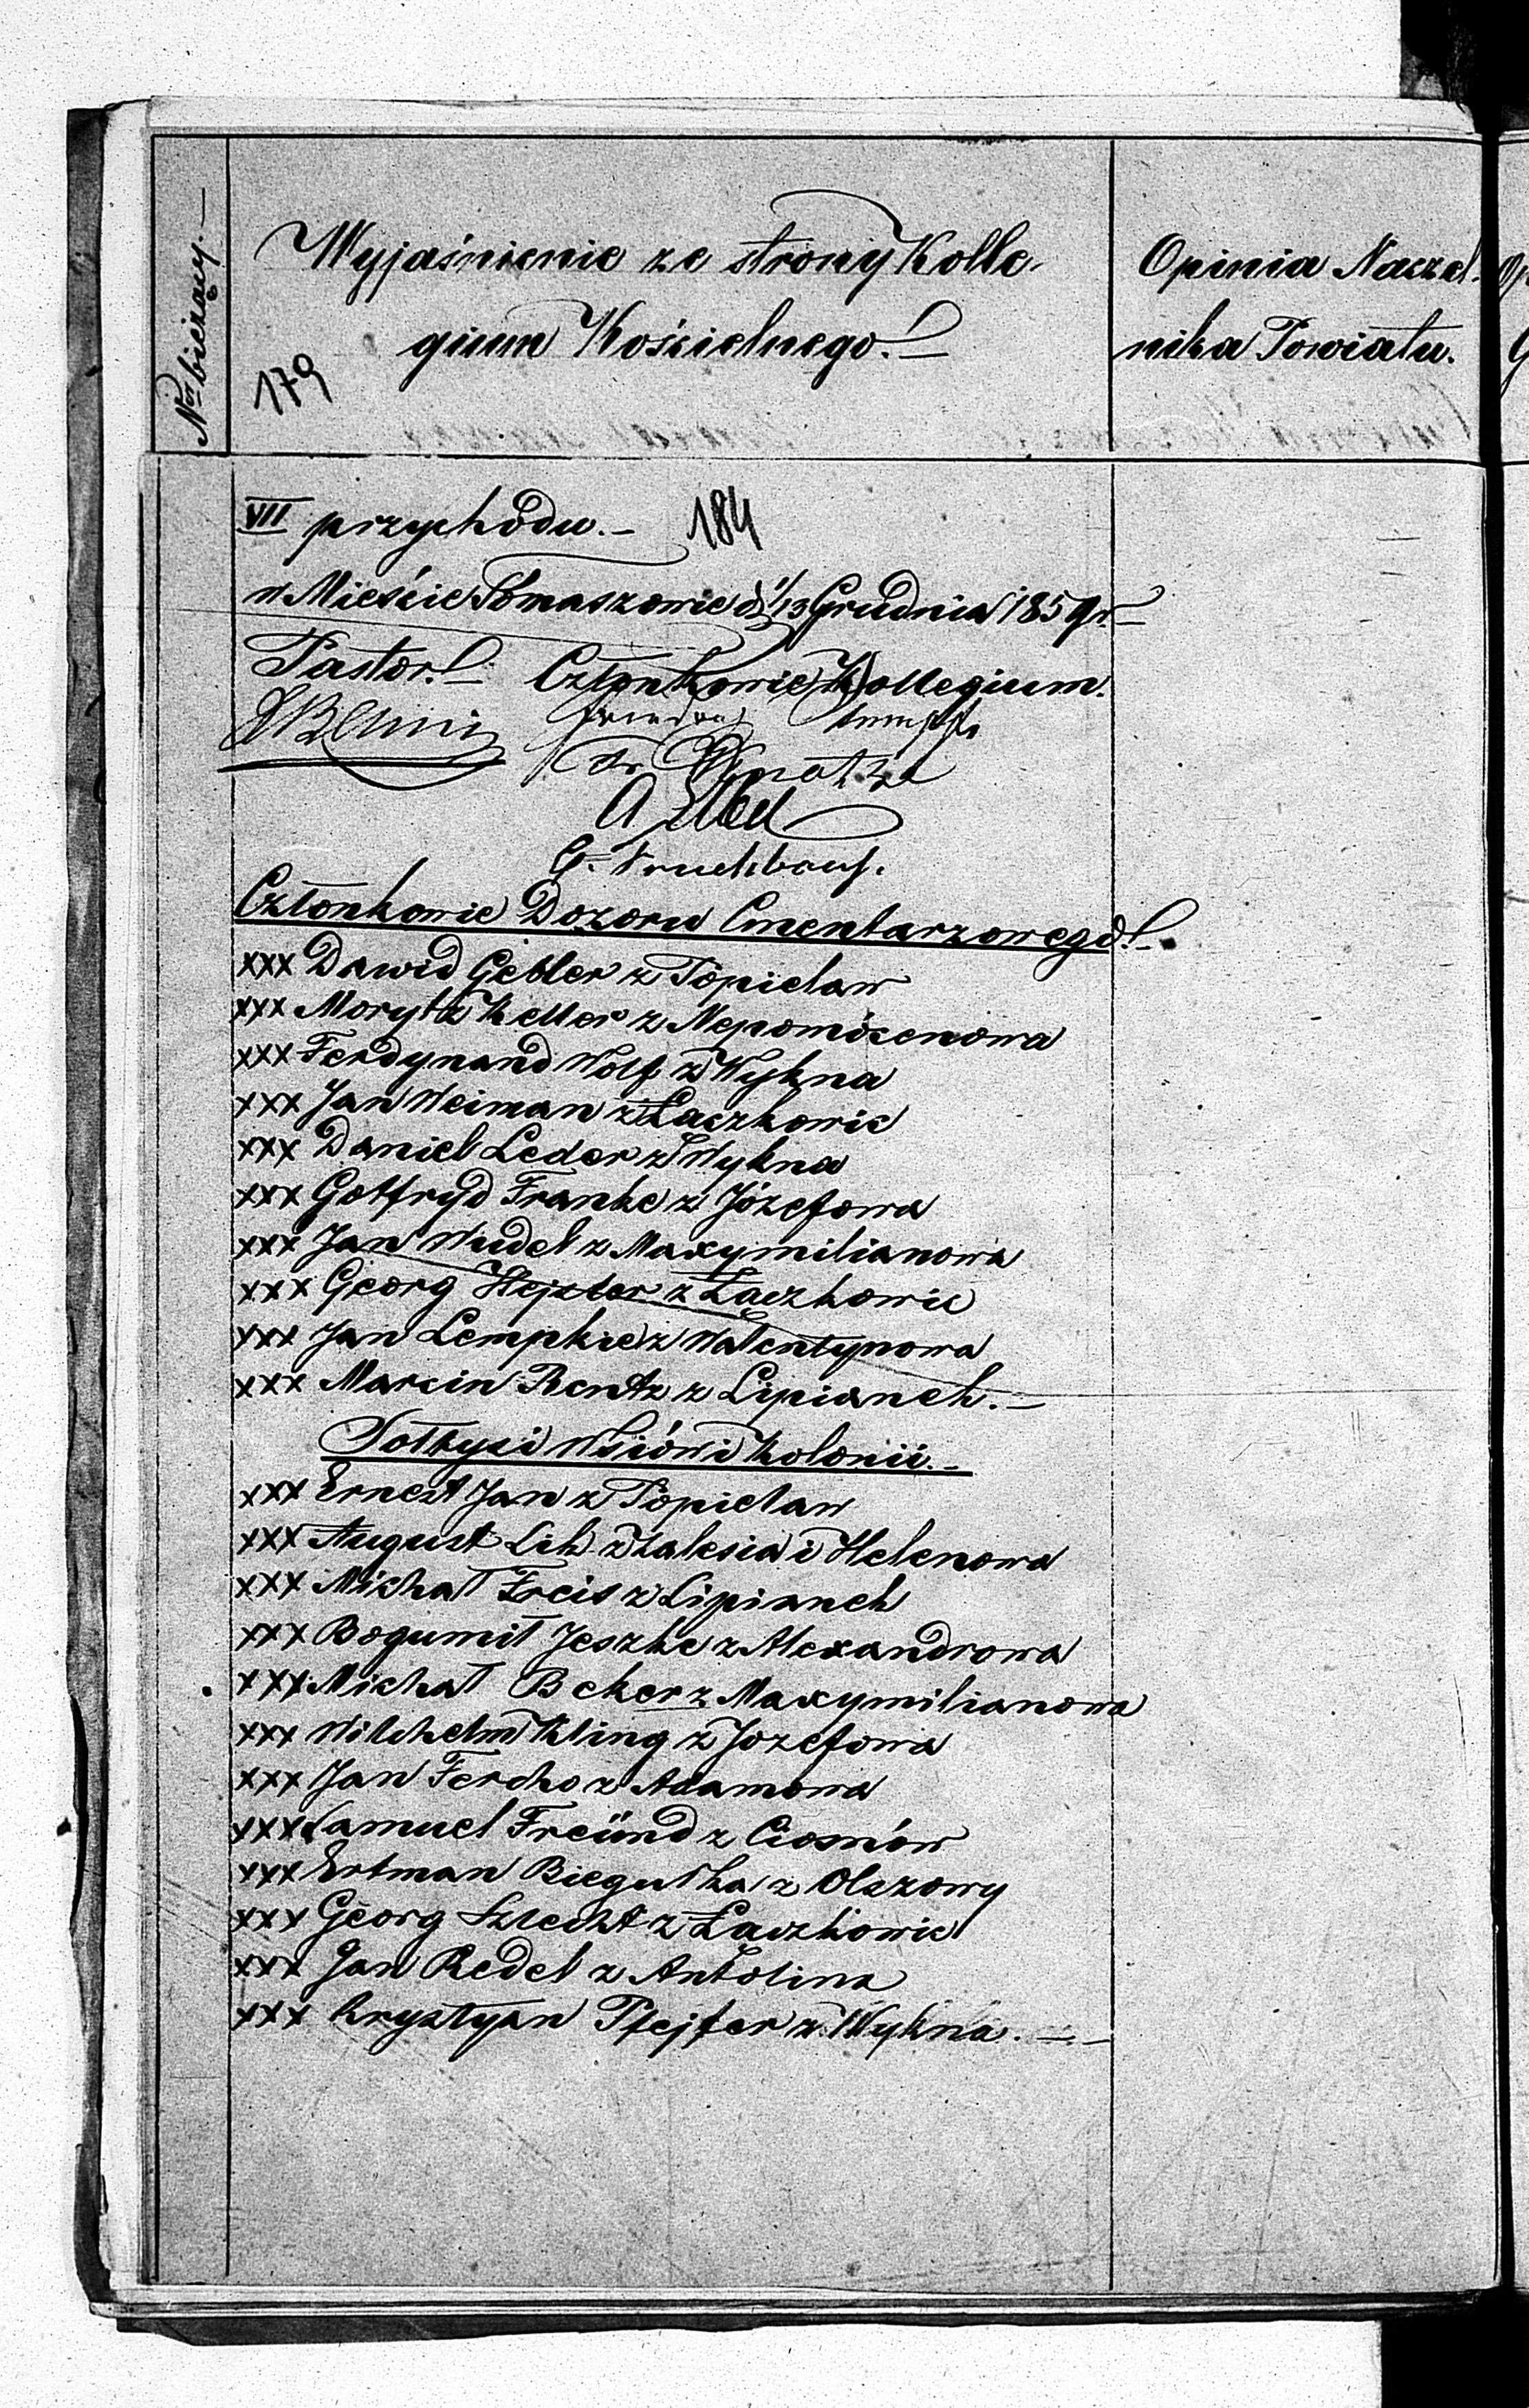 Nr bieżący.
Wyjaśnienie ze strony Kolle-
gium Kościelnego.
Opinia Naczel-
nika Powiatu.
179
VII przychodu.- 184
w Mieście Tomaszowie d. 1/13 Grudnia 1859 r.
Pastor. Członkowie Kollegium.
A Ebel
Członkowie Dozoru Cmentarzowego.
xxx Dawid Gebler z Popielaw
xxx Morytz Keller z Nepomócenowa
xxx Ferdynand Wolf z Wykna
xxx Jan Weiman z Łaczkowic
xxx Daniel Leder z Wykna
xxx Gotfryd Franke z Józefowa
xxx Jan Wudel z Maxymilianowa
xxx Georg Hejzler z Łaczkowic
xxx Jan Lempke z Walentynowa
xxx Marcin Rentz z Lipianek.-
Sołtysi Wsiów i Kolonii.-
xxx Ernezt Jan z Popielaw
xxx August Lik z Zalesia i Helenowa
xxx Michał Freis z Lipianek
xxx Bogumił Jeszke z Alexandrowa
xxx Michał Beker z Maxymilianowa
xxx Wilchelm Kling z Jozefowa
xxx Jan Fercho z Adamowa
xxx Samuel Freünd z Ciosnów
xxx Ertman Biegulka z Olszowy
xxx Georg Szlecht z Łaczkowic
xxx Jan Redel z Antolina
xxx Krystyan Pfejfer z Wykna.-